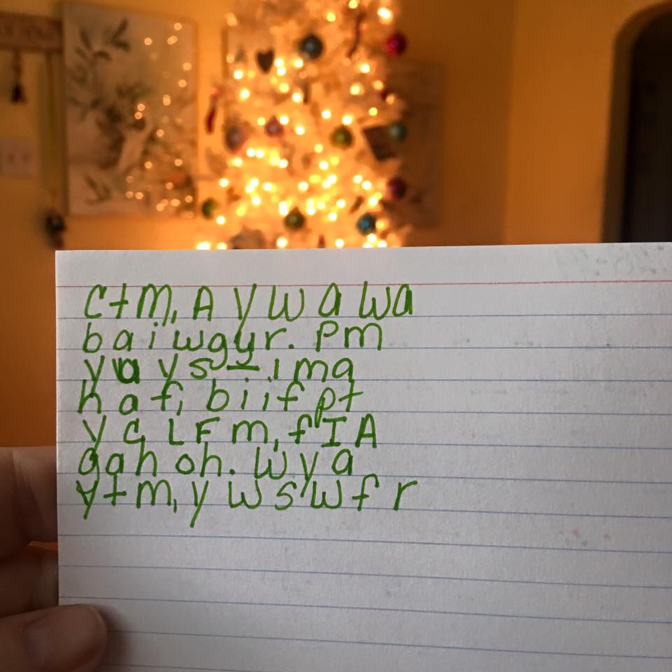 C t M, A y w a wa
b a i w g y r. P m
y u y s — i m g
h a f, b i i f p t
y c L F m, f I A
g a h o h. W y a
y t m, y w s w f r